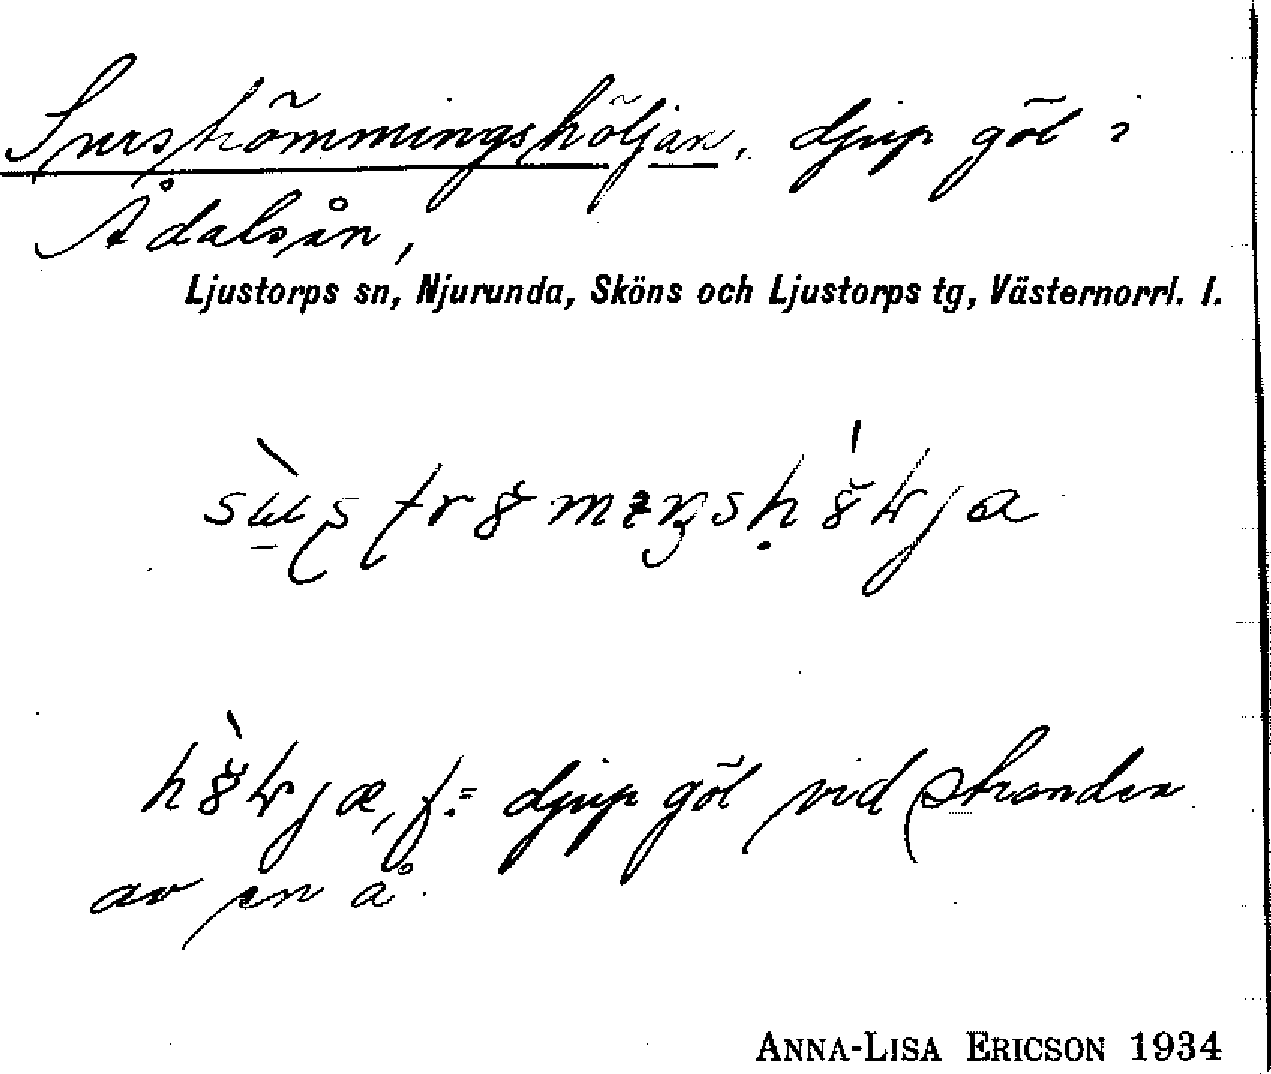 Surströmmingshöljan, djup göl i
Ådalsån,
Ljustorps sn, Njurunda, Sköns och Ljustorps tg, Västernorrl. l.
f. = djup göl vid stranden
av en å.
ANNA-LISA ERICSON 1934